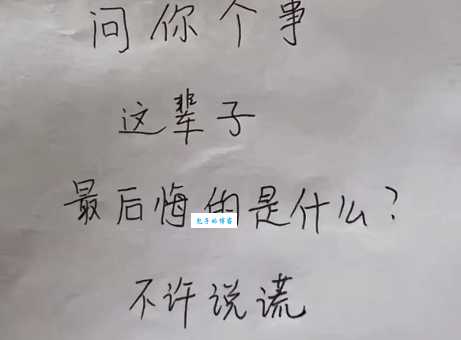 问你个事
这辈子
最后悔的是什么？
不许说谎